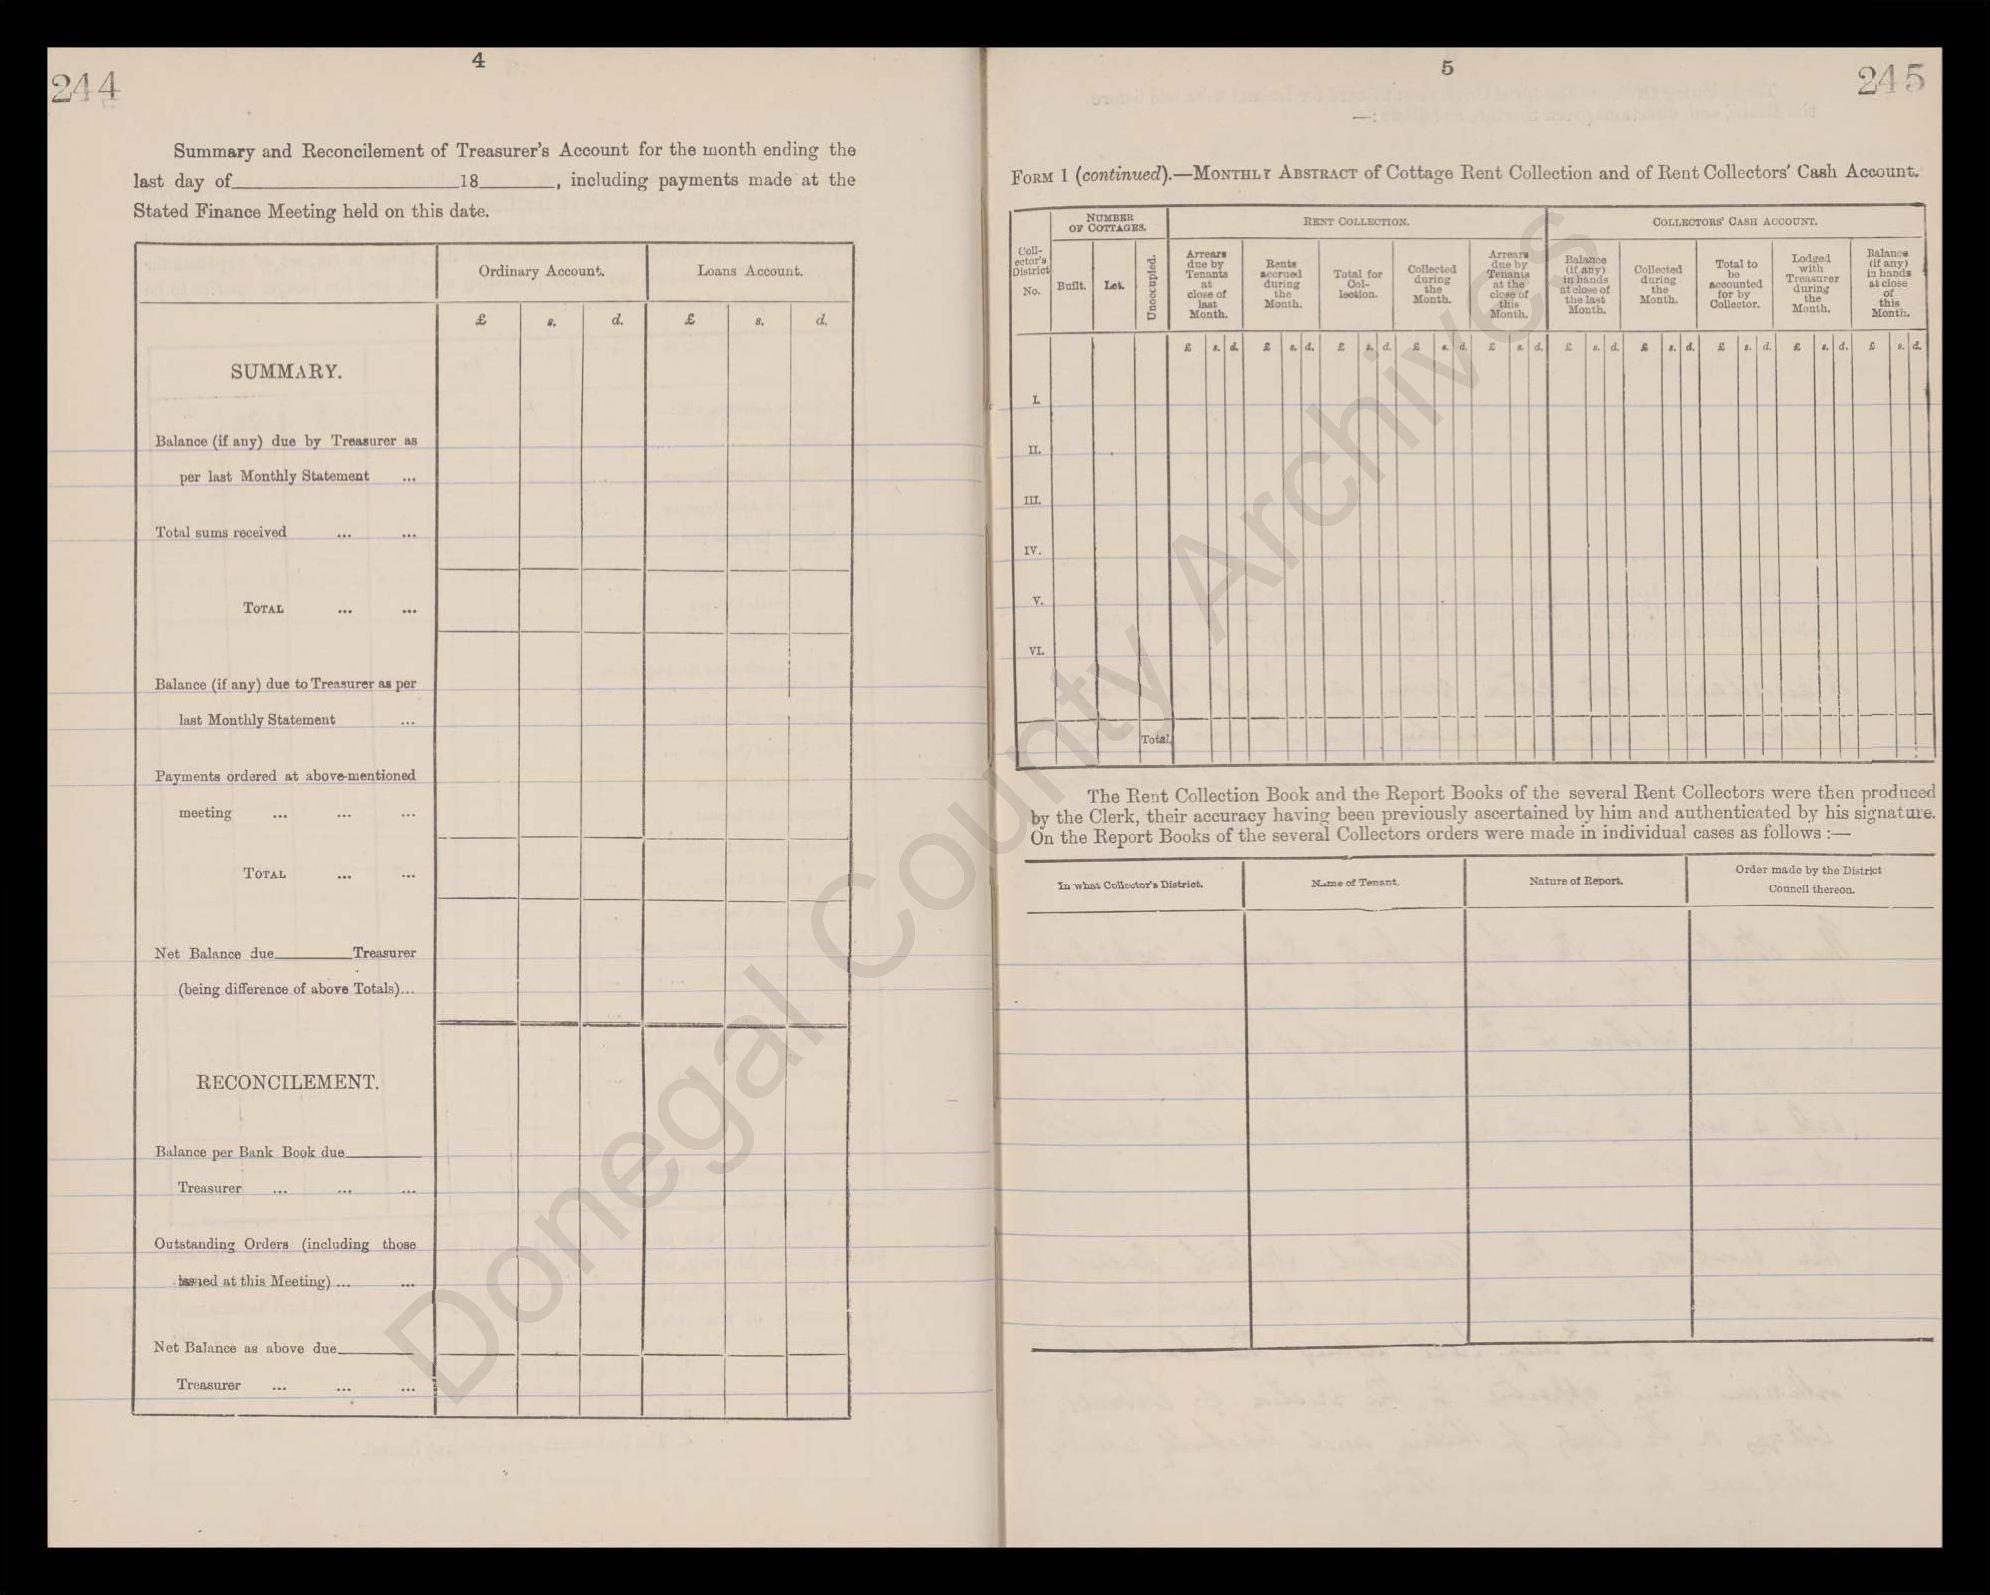 244
4
Summary and Reconcilement of Treasurer's Account for the month ending the
last day of 18 , including payments made at the
Stated Finance Meeting held on this date.
Ordinary Account. Loans Account.
£ s. d. £ s. d.
SUMMARY.
Balance (if any) due by Treasurer as
per last Monthly Statement ...
Total sums received ... ...
TOTAL ... ...
Balance (if any) due to Treasurer as per
last Monthly Statement ...
Payments ordered at above-mentioned
meeting ... ... ...
TOTAL ... ...
Net Balance due Treasurer
(being difference of above Totals)...
RECONCILEMENT.
Balance per Bank Book due
Treasurer ... ... ...
Outstanding Orders (including those
issued at this Meeting) ... ...
Net Balance as above due
Treasurer ... ... ...
5
245
FORM 1 (continued).—MONTHLY ABSTRACT of Cottage Rent Collection and of Rent Collectors' Cash Account.
Coll-
ector's
District
No.
NUMBER
OF COTTAGES.
Built. Let. Unoccupied.
RENT COLLECTION.
Arrears
due by
Tenants
at
close of
last
Month.
Rents
accrued
during
the
Month.
Total for
Col-
lection.
Collected
during
the
Month.
Arrears
due by
Tenants
at the
close of
this
Month.
COLLECTORS' CASH ACCOUNT.
Balance
(if any)
in hands
at close of
the last
Month.
Collected
during
the
Month.
Total to
be
accounted
for by
Collector.
Lodged
with
Treasurer
during
the
Month.
Balance
(if any)
in hands
at close
of
this
Month.
£ s. d. £ s. d. £ s. d. £ s. d. £ s. d. £ s. d. £ s. d. £ s. d. £ s. d. £ s. d.
I.
II.
III.
IV.
V.
VI.
Total.
The Rent Collection Book and the Report Books of the several Rent Collectors were then produced
by the Clerk, their accuracy having been previously ascertained by him and authenticated by his signature.
On the Report Books of the several Collectors orders were made in individual cases as follows :—
In what Collector's District. Name of Tenant. Nature of Report. Order made by the District
Council thereon.
Donegal County Archives